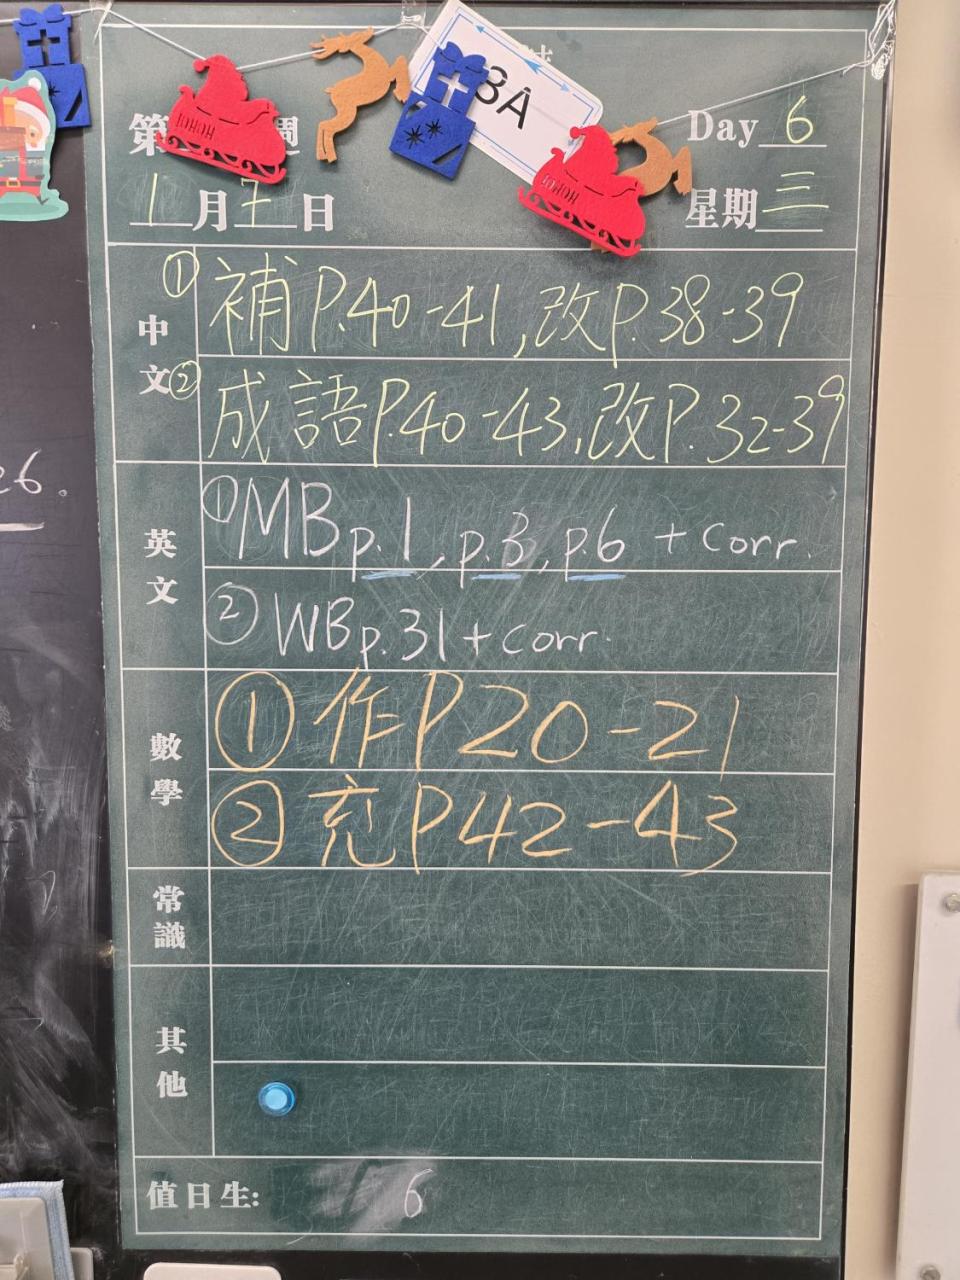 3A
第 週
Day 6
1月7日
星期三
中文
① 補P.40-41,改P.38-39
② 成語P.40-43,改P.32-39
英文
① MB p.1, p.3, p.6 + corr.
② WB p.31 + corr.
數學
① 作P20-21
② 充P42-43
常識
其他
值日生: 6
26.
HOHOH
HOHOH